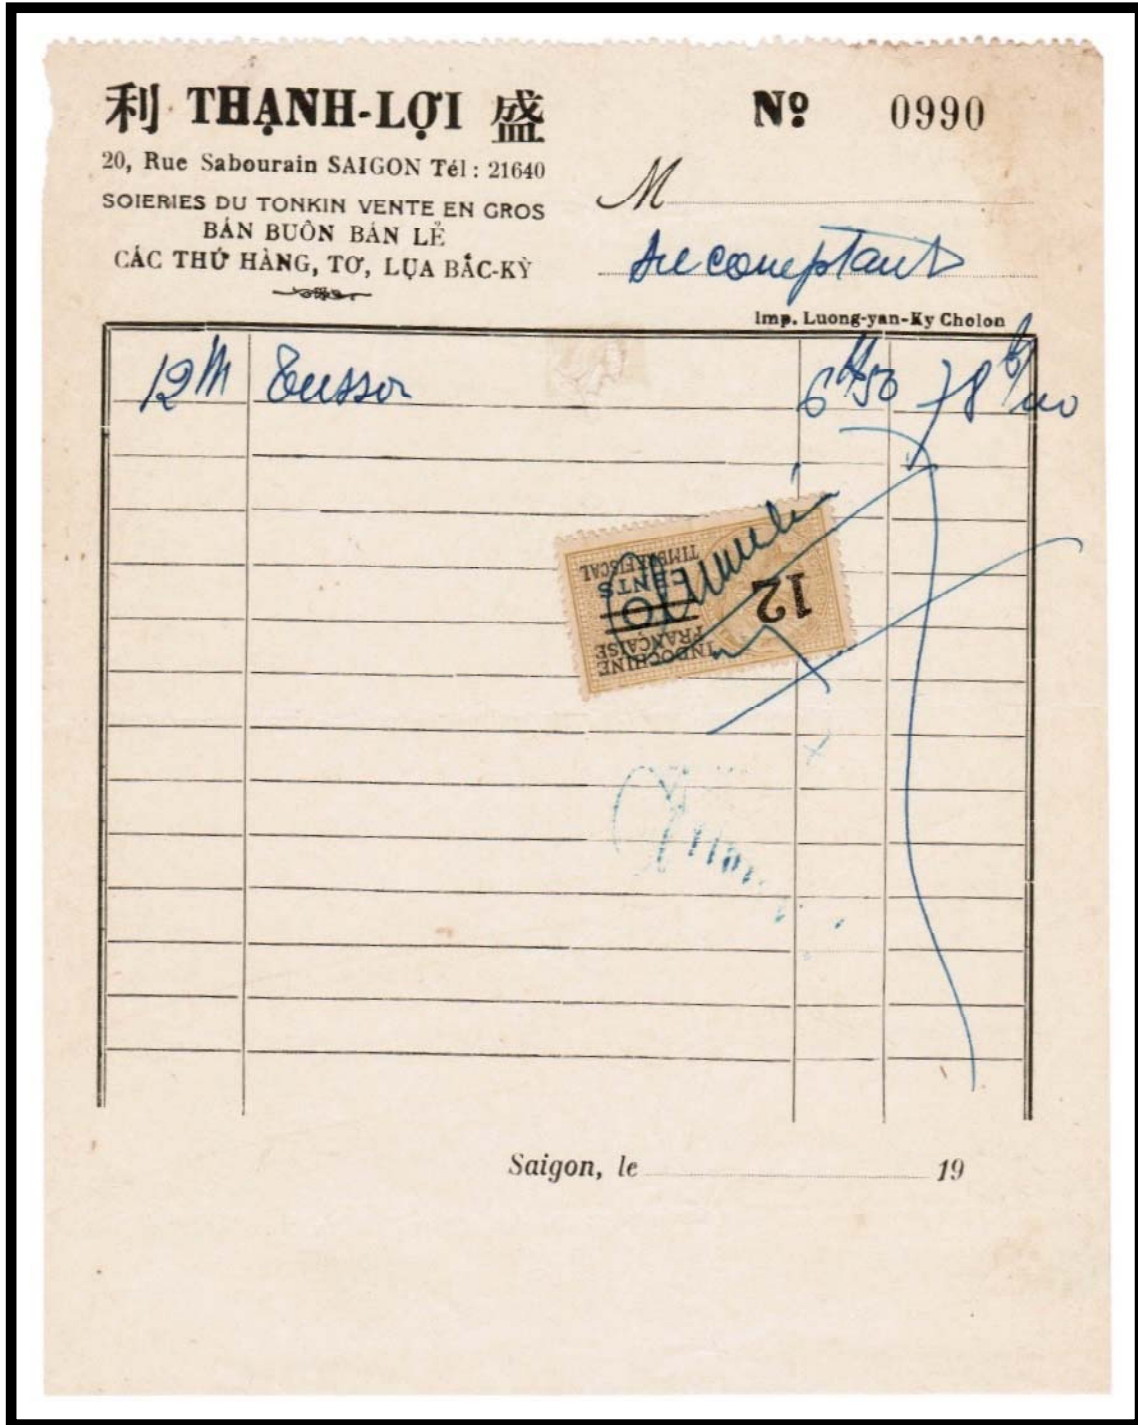 利 THẠNH-LỢI 盛
20, Rue Sabourain SAIGON Tél : 21640
SOIERIES DU TONKIN VENTE EN GROS
BÁN BUÔN BÁN LẺ
CÁC THỨ HÀNG, TƠ, LỤA BẮC-KỲ
Nº 0990
M
Au comptant
Imp. Luong-yan-Ky Cholon
12 M Tussor 6 $ 50 78 $ 00
INDOCHINE
FRANÇAISE
10
CENTS
TIMBRE FISCAL
12
Saigon, le 19